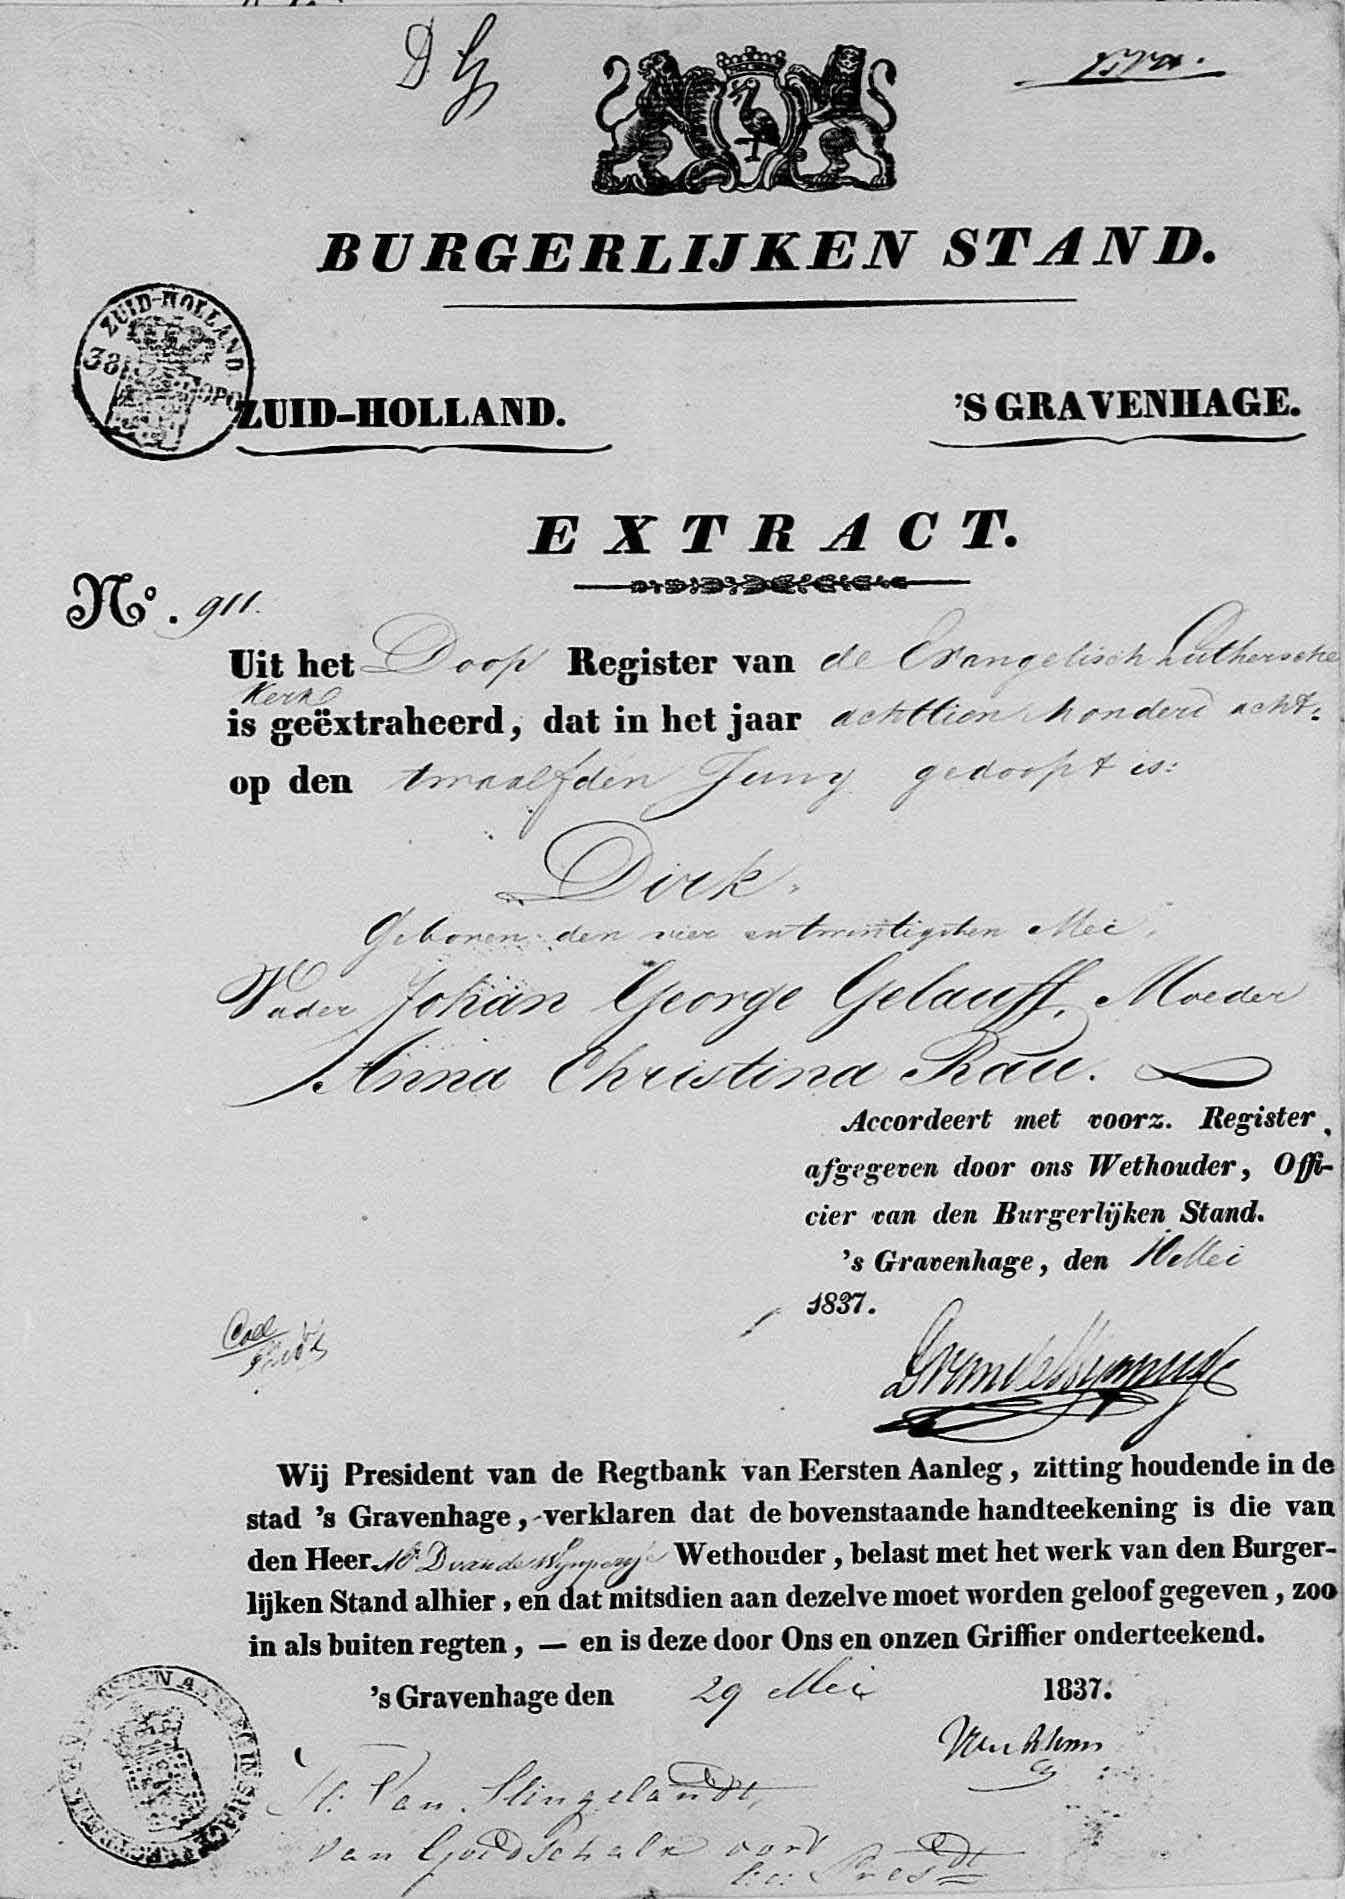 D. G.
BURGERLIJKEN STAND.
ZUID-HOLLAND
38
ZUID-HOLLAND. 'S GRAVENHAGE.
EXTRACT.
No. 911.
Uit het Doop Register van de Evangelisch Luthersche
Kerk
is geëxtraheerd, dat in het jaar achttien honderd acht.
op den twaalfden Juny gedoopt is:
Dirk.
Geboren den vier en twintigsten Mei.
Vader Johan George Gelauff, Moeder
Anna Christina Rau.
Accordeert met voorz. Register
afgegeven door ons Wethouder, Offi-
cier van den Burgerlijken Stand.
's Gravenhage, den Mei
1837.
Coll
Wij President van de Regtbank van Eersten Aanleg, zitting houdende in de
stad 's Gravenhage, verklaren dat de bovenstaande handteekening is die van
den Heer Mr D van de Wijnpersse Wethouder, belast met het werk van den Burger-
lijken Stand alhier, en dat mitsdien aan dezelve moet worden geloof gegeven, zoo
in als buiten regten, — en is deze door Ons en onzen Griffier onderteekend.
's Gravenhage den 29 Mei 1837.
Van Slingelandt,
van Goedschalk oort
Presdt